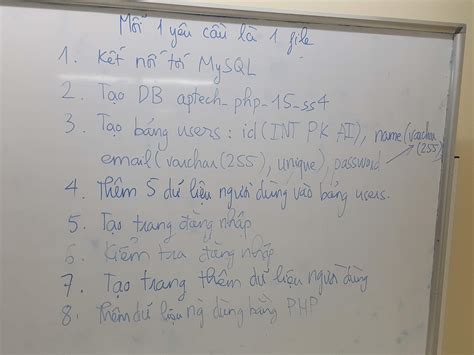 Mỗi 1 yêu cầu là 1 file
1. Kết nối tới MySQL
2. Tạo DB aptech_php_15_ss4
3. Tạo bảng users: id(INT PK AI), name(varchar
(255)
email(varchar(255), unique), password
4. Thêm 5 dữ liệu người dùng vào bảng users.
5. Tạo trang đăng nhập
6. Kiểm tra đăng nhập
7. Tạo trang thêm dữ liệu người dùng
8. Thêm dữ liệu ng dùng bằng PHP